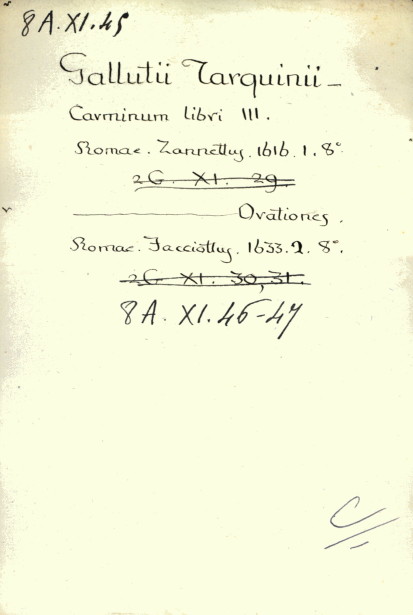 8 A. XI. 45
Gallutii Tarquinii —
Carminum libri III.
Romae. Zannettus. 1616. 1. 8°.
2 G. XI. 29.
———— Orationes.
Romae. Facciottus. 1633. 2. 8°.
2 G XI. 30, 31.
8 A. XI. 46-47
C